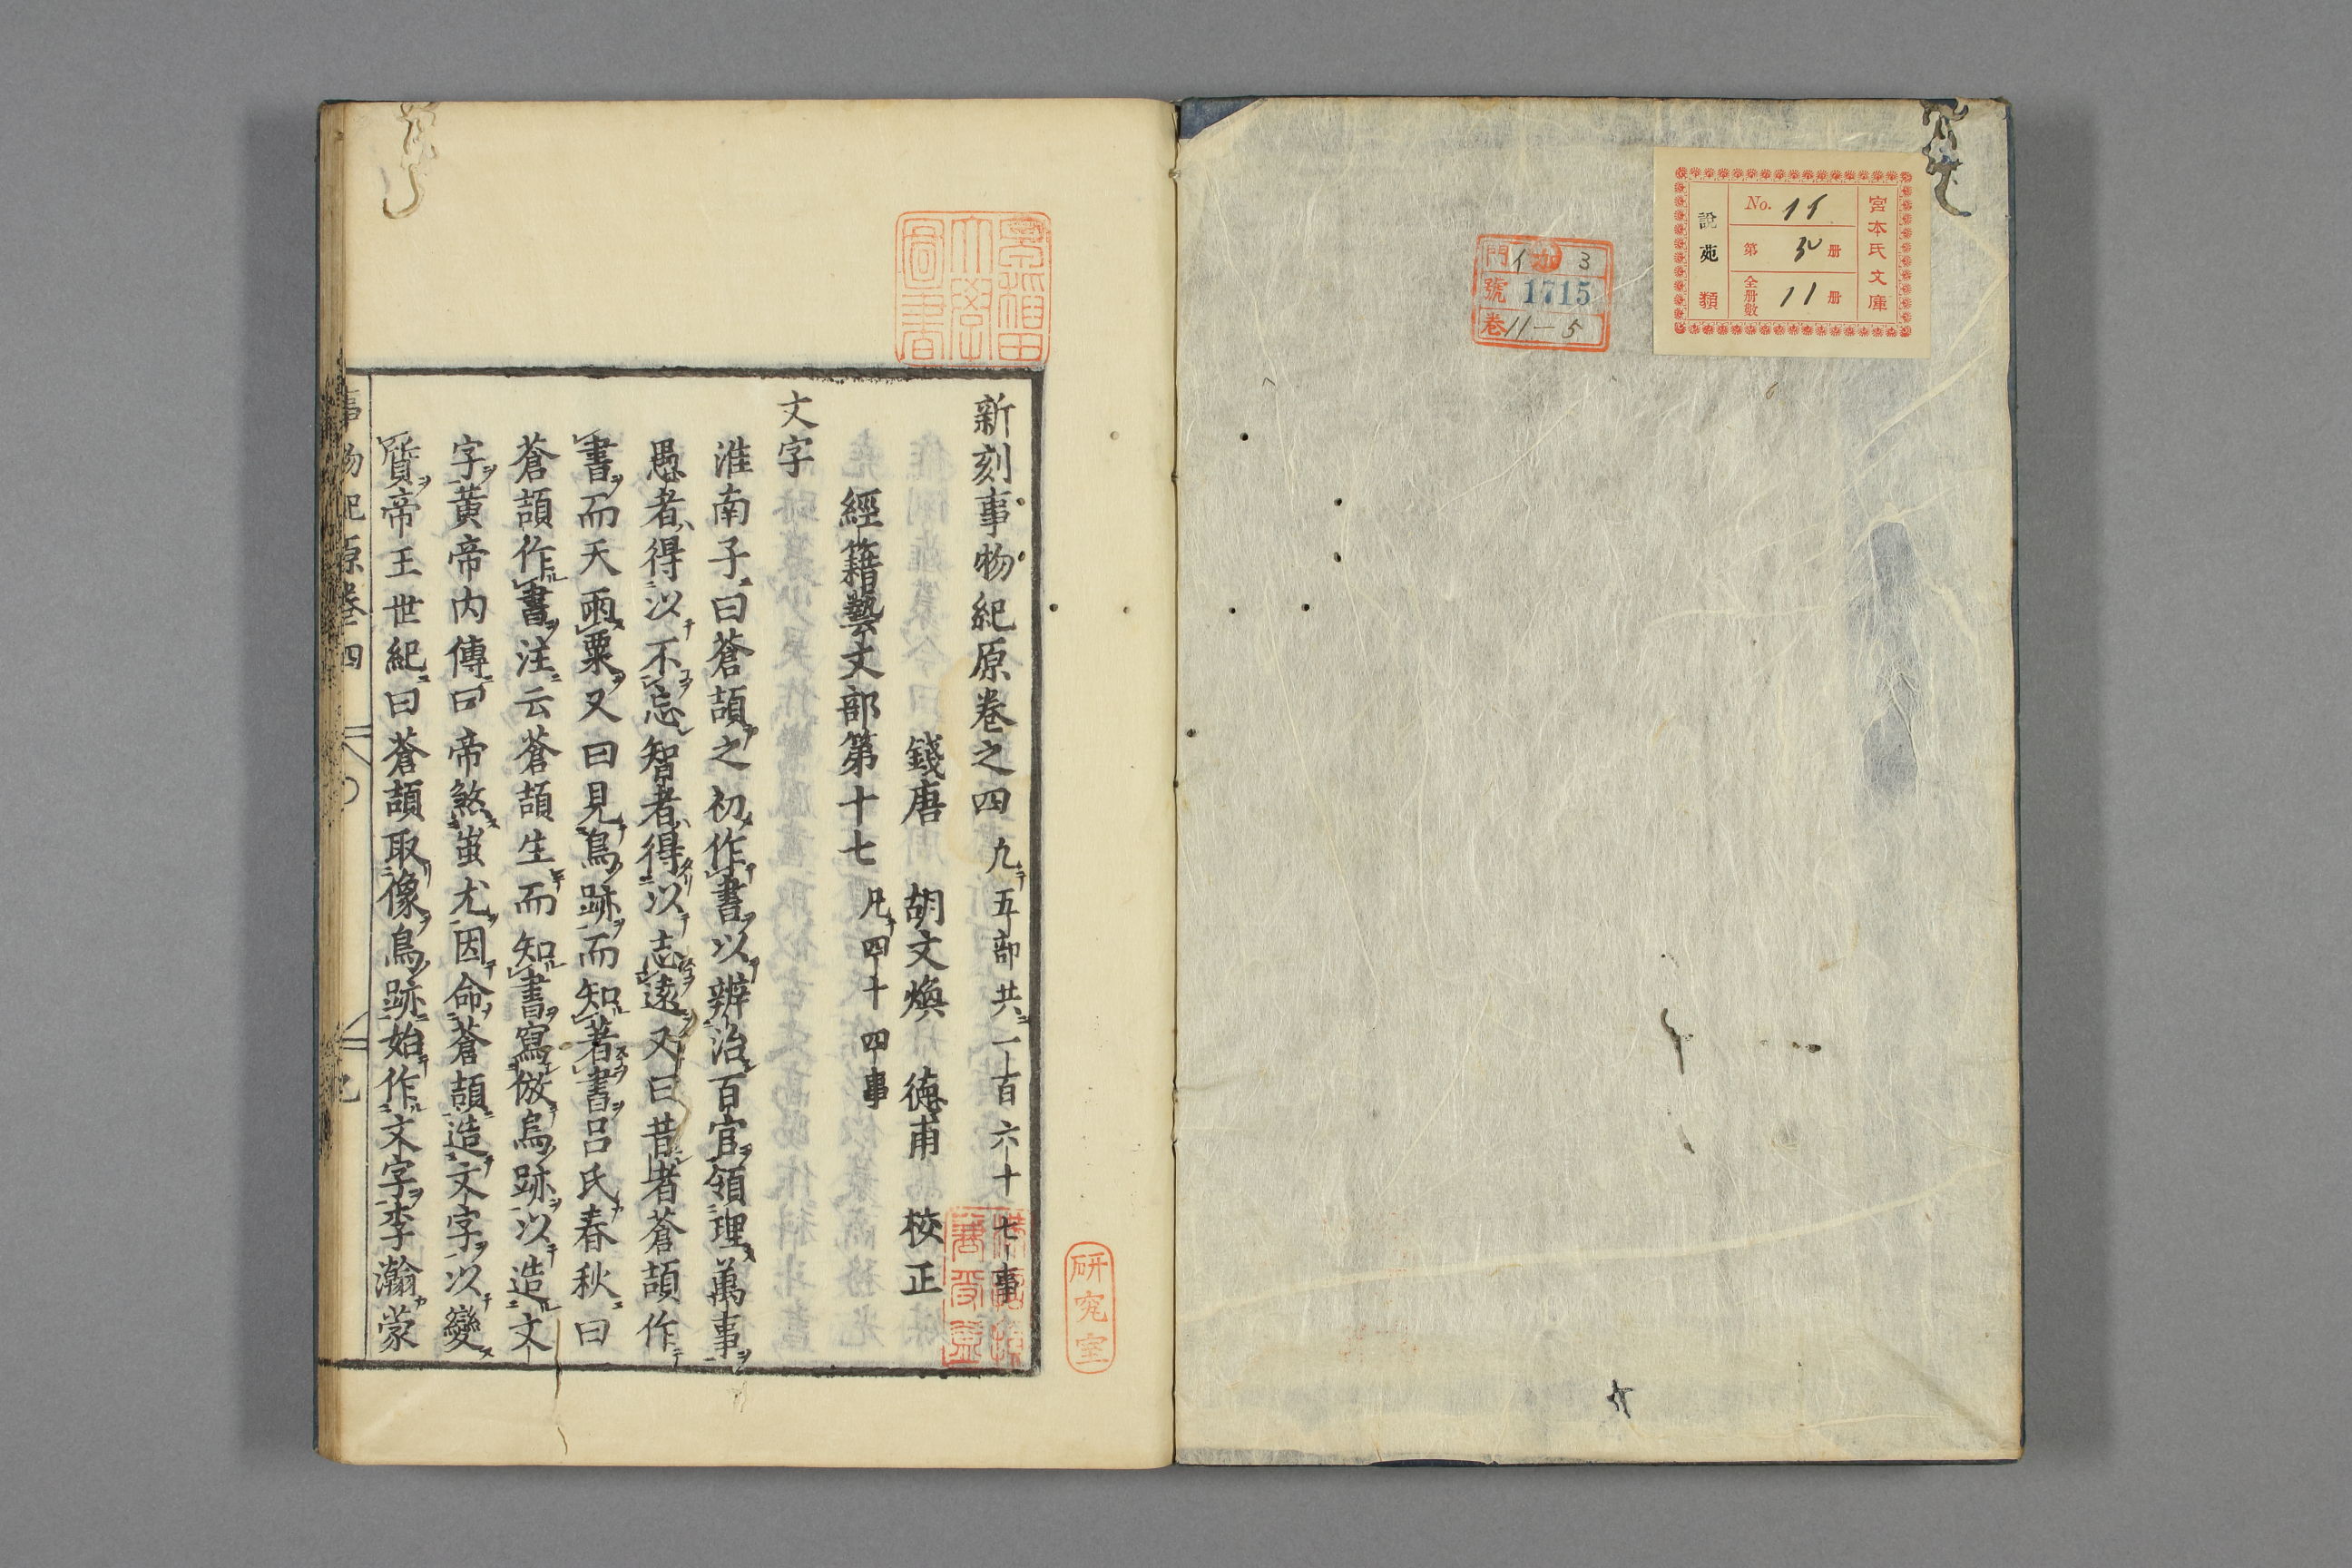 宮本氏文庫
No. 15
第 30 册
全册數 11 册
說苑類
門 イ 3
號 1715
卷 11-5
早稲田大學圖書
研究室
新刻事物紀原卷之四 九五部共一百六十七事
錢唐 胡文煥 德甫 校正
經籍藝文部第十七 凡四十四事
文字
淮南子曰蒼頡之初作書以辨治百官領理萬事
愚者得以不忘智者得以志遠又曰昔者蒼頡作
書而天雨粟又曰見鳥跡而知著書呂氏春秋曰
蒼頡作書注云蒼頡生而知書寫倣鳥跡以造文
字黃帝內傳曰帝煞蚩尤因命蒼頡造文字以變
質帝王世紀曰蒼頡取像鳥跡始作文字李瀚蒙
事物紀原卷四